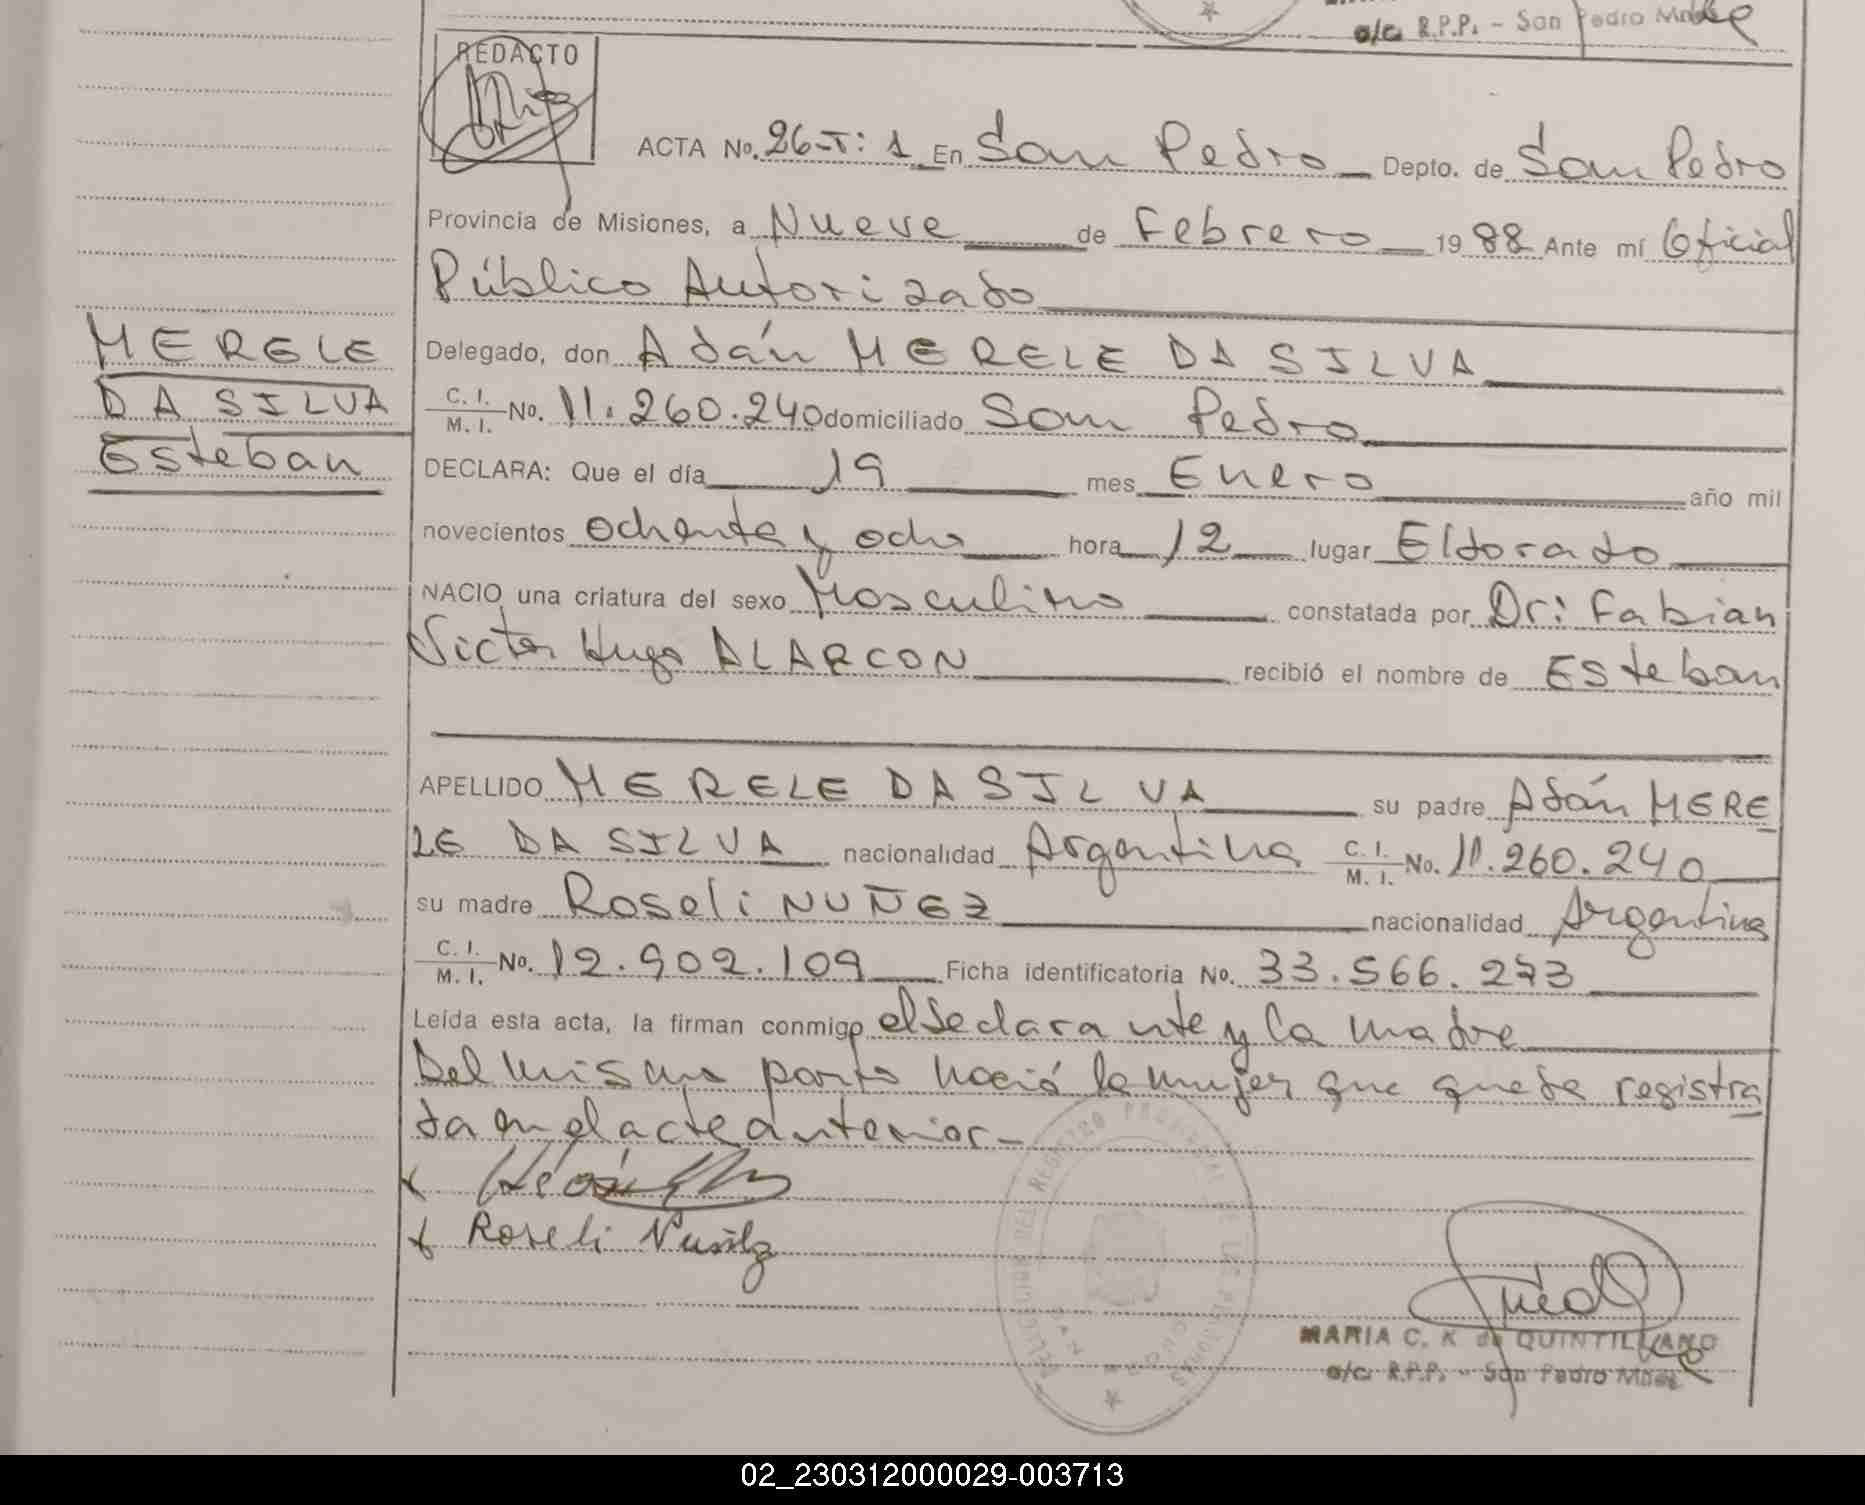 a/c. R.P.P. - San Pedro Mnes
REDACTO
ACTA No. 26-T: 1 En San Pedro Depto. de San Pedro
Provincia de Misiones, a Nueve de Febrero 1988 Ante mí Oficial
Público Autorizado
MERELE
Delegado, don Adán MERELE DA SILVA
DA SILVA
C. I. / M. I. No. 11.260.240 domiciliado San Pedro
Esteban
DECLARA: Que el día 19 mes Enero año mil
novecientos ochenta y ocho hora 12 lugar Eldorado
NACIO una criatura del sexo Masculino constatada por Dr: Fabian
Victor Hugo ALARCON recibió el nombre de Esteban
APELLIDO MERELE DA SILVA su padre Adán MERE
LE DA SILVA nacionalidad Argentina C. I. / M. I. No. 11.260.240
su madre Roseli NUÑEZ nacionalidad Argentina
C. I. / M. I. No. 12.902.109 Ficha identificatoria No. 33.566.273
Leída esta acta, la firman conmigo el declarante y la madre
Del mismo parto nació la mujer que queda registra
da en el acta anterior.-
Roseli Nuñez
MARIA C. K de QUINTILLANO
a/c. R.P.P. - San Pedro Mnes
02_230312000029-003713